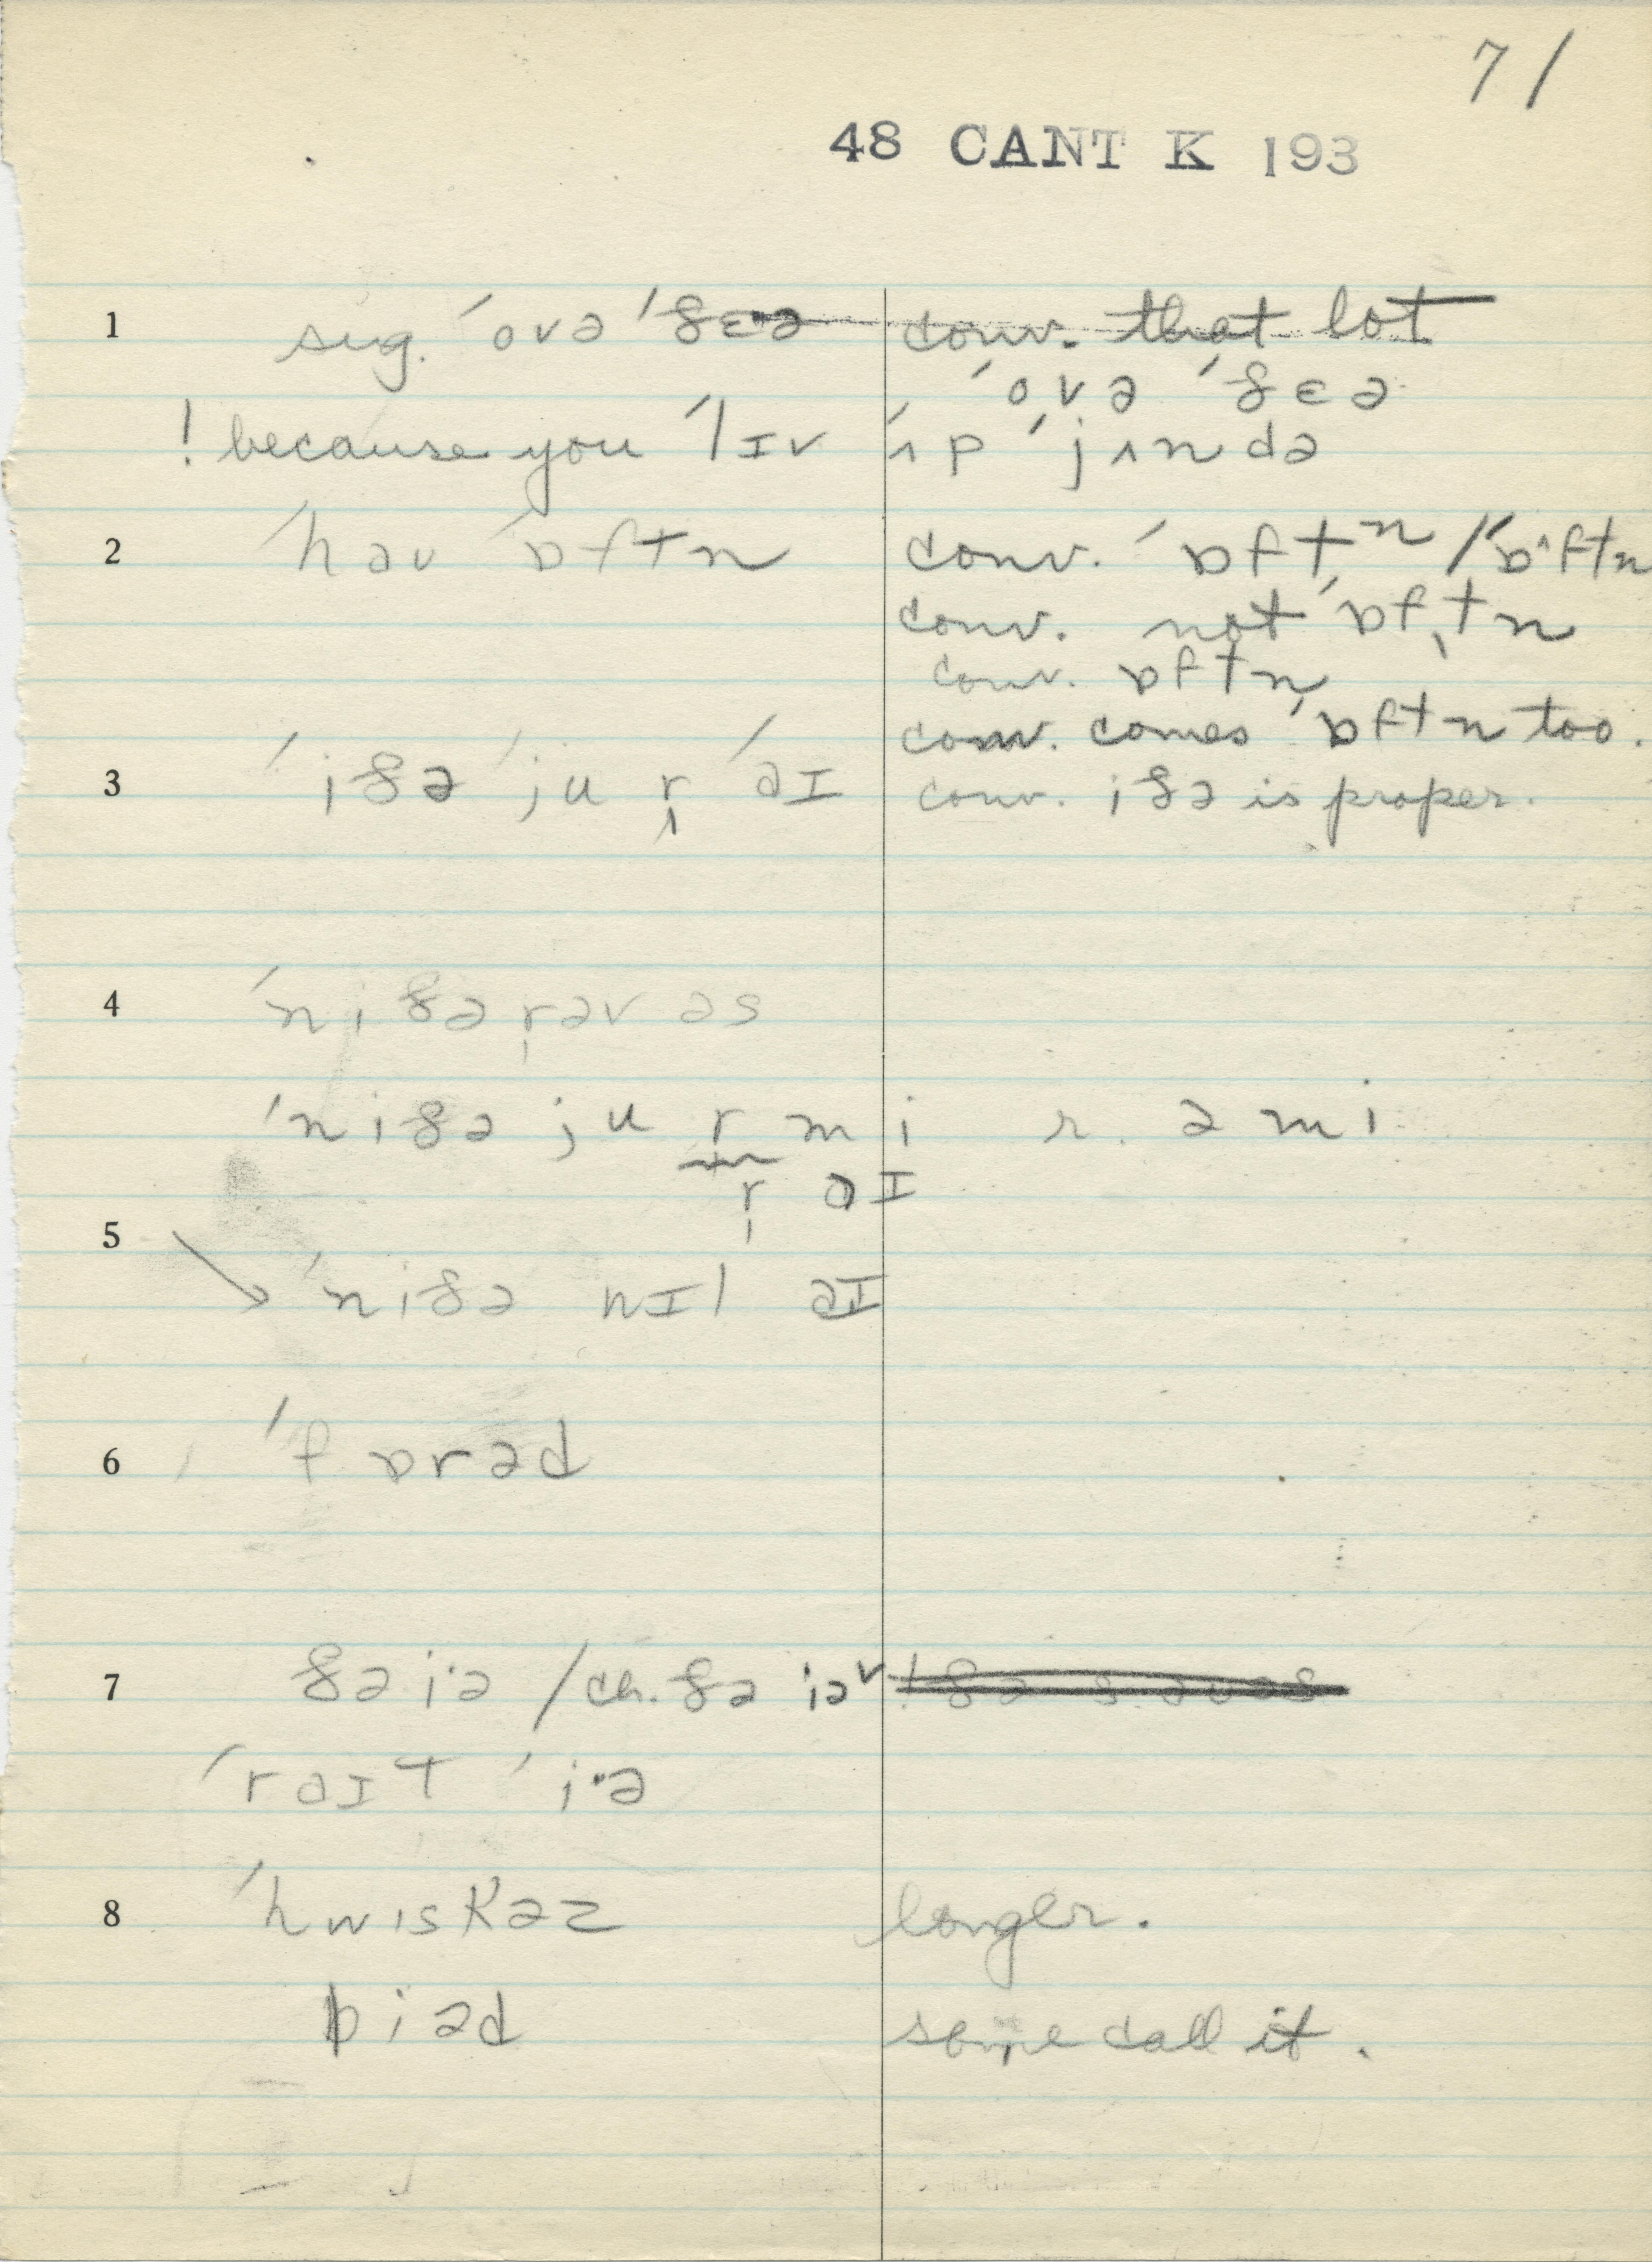 71
48 CANT K 193
1 sug. ˈovə ˈðɛ·ə conv. that lot
ˈovə ˈðɛə
! because you ˈlɪv ˈʌp ˈjʌndə
2 ˈhəu ˈɒftn conv. ˈɒftn / ˈɒ^ftn
conv. not ˈɒftn
conv. ɒftn
conv. comes ˈɒftn too.
3 ˈiðə ˈju r ˈəɪ conv. iðə is proper.
4 ˈniðə r əv əs
ˈniðə ju r mi r. ə mi
r əɪ
5 → ˈniðə nɪl əɪ
6 ˈfɒrəd
7 ðə i·ə / ch. ðə iə
ˈrəɪt ˈi·ə
8 ˈhwiskəz longer.
biəd some call it.